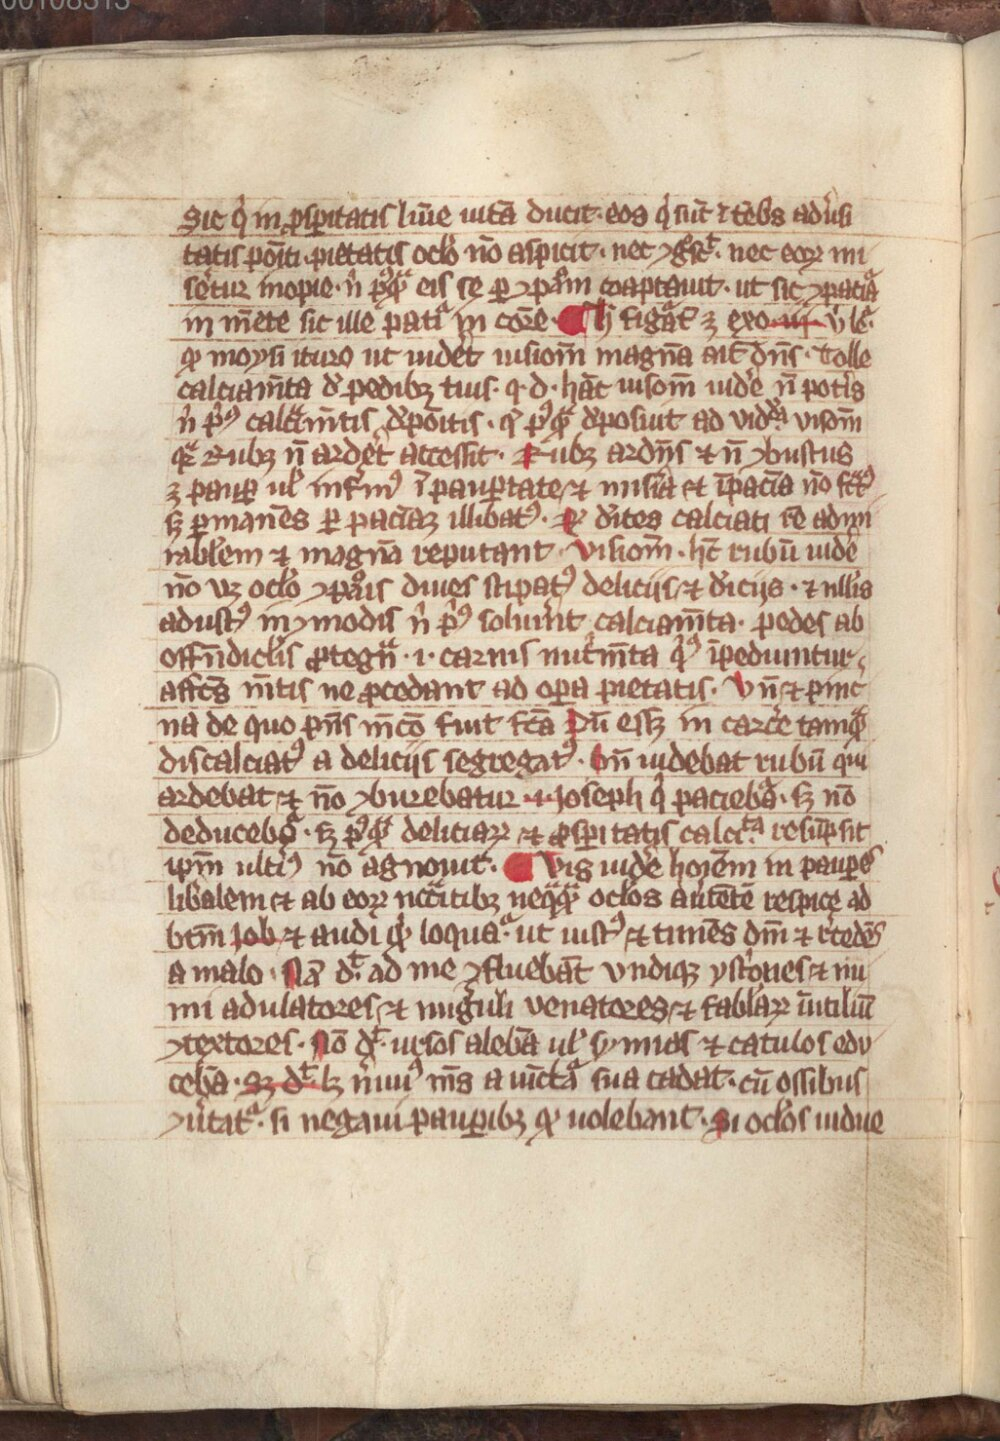 00108313
Sic q̇ in ꝓsꝑitatis lūīe uitā ducit · eos q̇ sūt ī teb̾s adu̾si
tatis pōiti · pietatis oclo̾ nō aspicit · nec ꝯgͣsc̄t · nec eoꝝ mi
se̾tur inopie · n̾ pͥ̾qͣ eis se ꝑ ꝯpa̾ōm coaptauit · ut sic ꝯpaciaͣ
in mēte sic ille patiͣ in core̾ · h̾ figaͣt̾ ꝫ exo iii v̾ l̾c̾ ·
ꝙ moysi ituro ut uidet̾ uisiom̄ magnā ait dn̄s · Tolle
calciam̄ta d̾ pedibꝫ tuis · q · d · hāc uisom̄ uide̾ n̄ pot̾is
n̾ pͥ̾ꝰ calciam̄tis dep̄ōitis · qͥ pͥ̾qͣ d̾posuit ad vidēͣ visom̄
qͣ rubꝫ n̄ arde̾t accessit · Rubꝫ ardn̄s ⁊ n̄ ꝯbustus
ꝫ paup̾ ul̾ infirm̾ꝰ ī pauꝑtate ⁊ misi̾a ⁊ īpaciā nō fc̄tꝰ
sꝫ ꝑmanēs ꝑ paciāꝫ illibatꝰ · d̾ites calciati rē admi
rablem̾ ⁊ magnā reputant · Visiom̄ · hc̄ rubū uide̾
nō uꝫ oclo̾ ꝯpa̾ōis diues stipatꝰ deliciis ⁊ d̾iciis · ⁊ nll̾is
adustꝰ inꝯmodis n̾ pͥ̾ꝰ solui̾nt calciam̄ta · pedes ab
offn̄diclis̾ ꝓtegn̄ͣ · i · carnis nut̾m̄ta qͥꝰ īpediuntur
affc̄s m̄tis ne ꝓcedant ad oꝑa pietatis · Vn̄ ⁊ pinc̾
na de quo pn̄s m̄cō fuit fc̄a dū essꝫ in carce̾ tamqͣ
discalciatꝰ a deliciis segregatꝰ · bn̄ uidebat rubū qui
ardebat ⁊ nō ꝯburebatur · i · Joseph q̇ paciebaͣ · sꝫ nō
deducebaͣ · sꝫ pͥ̾qͣ deliciaꝝ ⁊ ꝓsꝑitatis calci̾ta resūpsit
ip̄m ult̾iꝰ nō agnouit · Vis uide̾ hoi̾em in pauꝑes
lib̾alem ⁊ ab eoꝝ nc̄citatibꝫ neqͣqͣ oclo̾s au̾tētē respice ad
btm̄ Job ⁊ audi qͥ̾ loquaͣ · ut iustꝰ ⁊ timēs dm̄ ⁊ r̾cedēs
a malo · Nā d̄t · ad me ꝯfluebāt vndiqꝫ ystri̾ones ⁊ mi
mi adulatores ⁊ miguli̾ venatores ⁊ fablaꝝ̾ īutiliū
ꝯtextores · Nō d̄t · ursos alebā ul̾ symias ⁊ catulos edu
cebā · sꝫ d̄t lꝫ ni̾uꝰ m̄s a iūctaͣ sua cadat · cū ossibus
ꝯt̾ataͣ · si negaui pauꝑibꝫ ꝙ uolebant · Si oclo̾s uidue